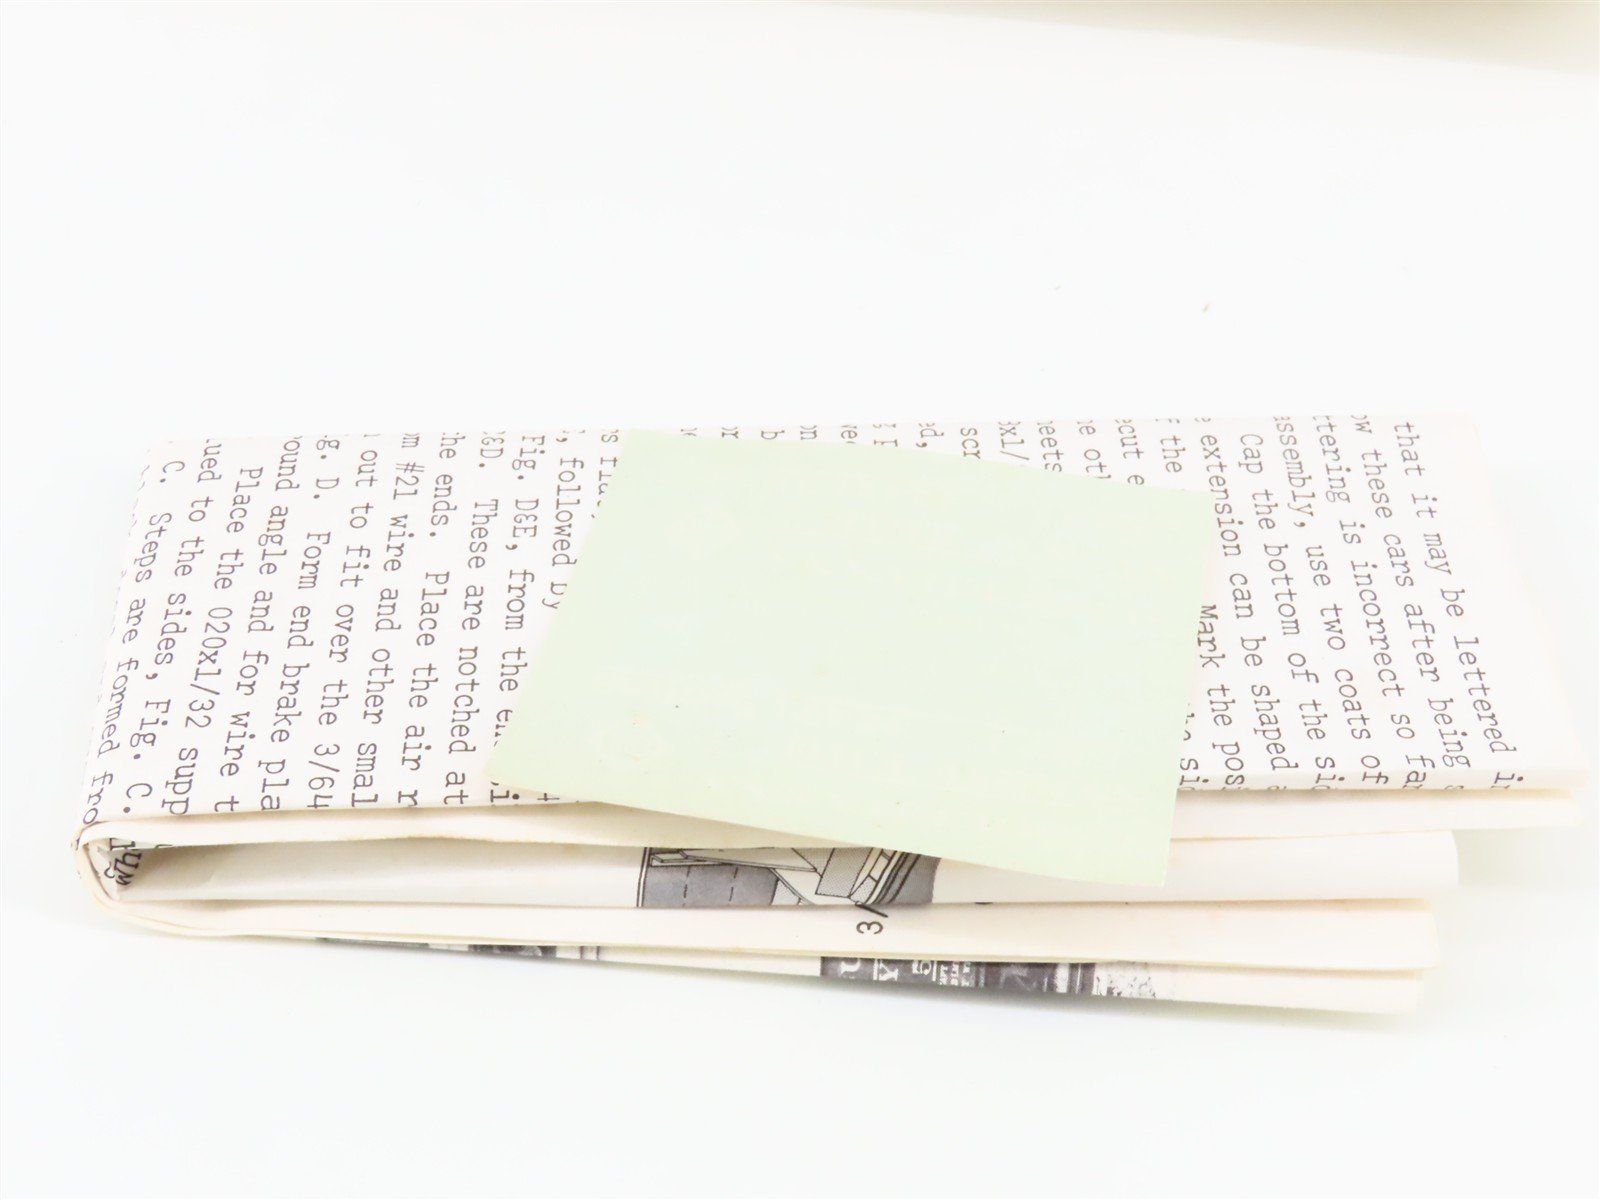 that it may be lettered in
ow these cars after being s
ttering is incorrect so far
assembly, use two coats of
Cap the bottom of the sid
e extension can be shaped a
f the Mark the posi
ecut e
e oth sid
heets
3xl/
scr
ed,
, followed by
Fig. D&E, from the en
&D. These are notched at
the ends. Place the air r
om #21 wire and other smal
out to fit over the 3/64
g. D. Form end brake pla
round angle and for wire t
Place the 020xl/32 supp
ued to the sides, Fig. C.
C. Steps are formed fro